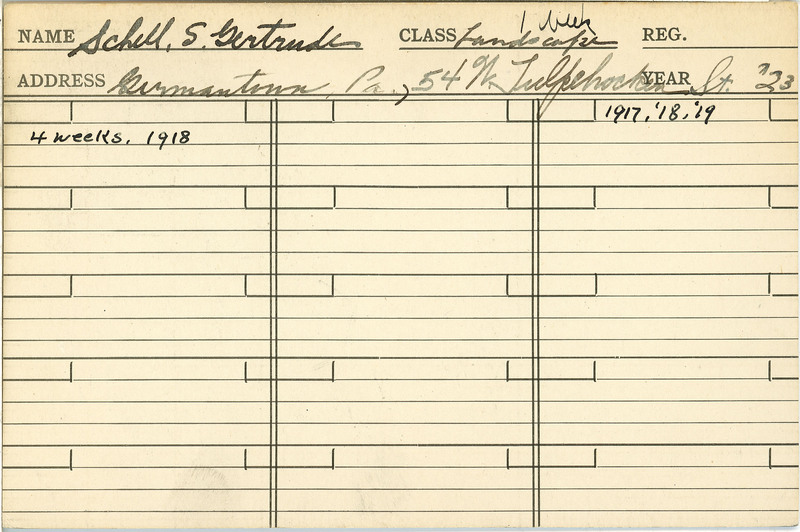 1 week
NAME Schell, S. Gertrude CLASS Landscape REG.
ADDRESS Germantown, Pa., 54 W. Tulpehocken St. YEAR '23
1917, '18, '19
4 weeks. 1918